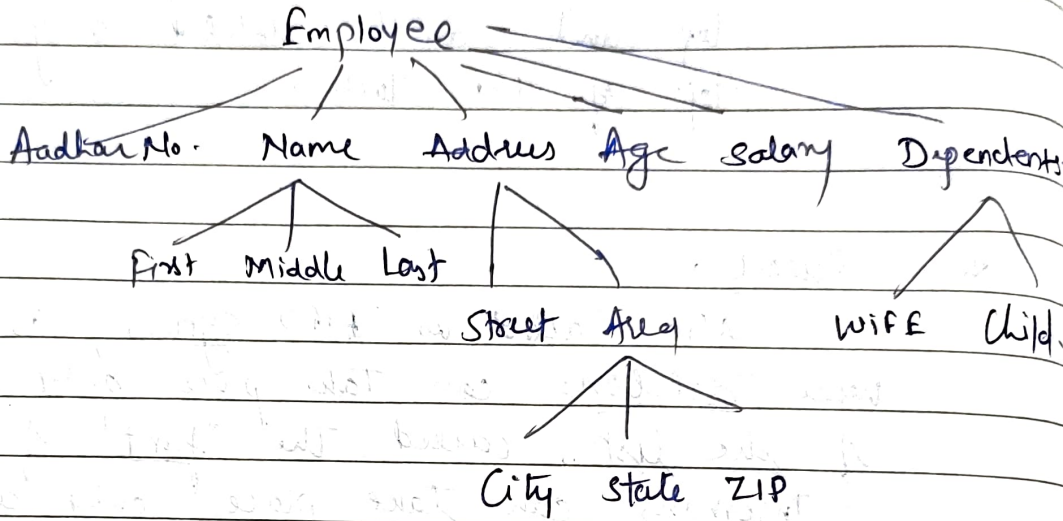 Employee
Aadhar No. Name Address Age Salary Dependents
First Middle Last
Street Area WIFE Child.
City State ZIP